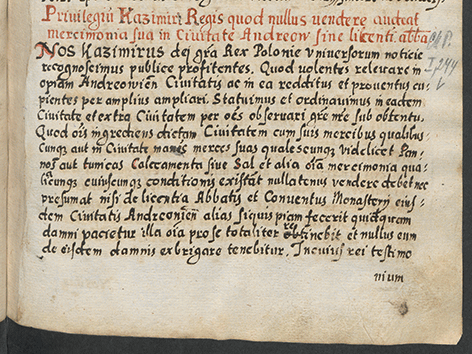 Privilegiū Kazimiri Regis quod nullus vendere audeat
mercimonia sua in Ciuitate Andreow sine licenti abba
Nos Kazimirus dei gra Rex Polonie vniuersorum noticie
recognoscimus publice profitentes. Quod volentes releuare in
opiam Andreouien Ciuitatis ac in ea redditus et prouentus cu
pientes per amplius ampliari. Statuimus et ordinauimus in eadem
Ciuitate et extra Ciuitatem per oēs obseruari gre nre sub obtentu.
Quod oīs ingrediens dictam Ciuitatem cum suis mercibus qualibus
cunque aut in Ciuitate manēs merces suas qualescunque videlicet Pan
nos aut tunicas Calceamenta siue Sal et alia oīa mercimonia qua
licunque cuiuscunque conditionis existāt nullatenus vendere debet nec
presumat nisi de licentia Abbatis et Conuentus Monasterij eius
dem Ciuitatis Andreouien alias siquispiam fecerit quicquam
damni pacietur illa oīa pro se totaliter retinebit et nullus eum
de eisdem damnis exbrigare tenebitur. In cuius rei testimo
nium